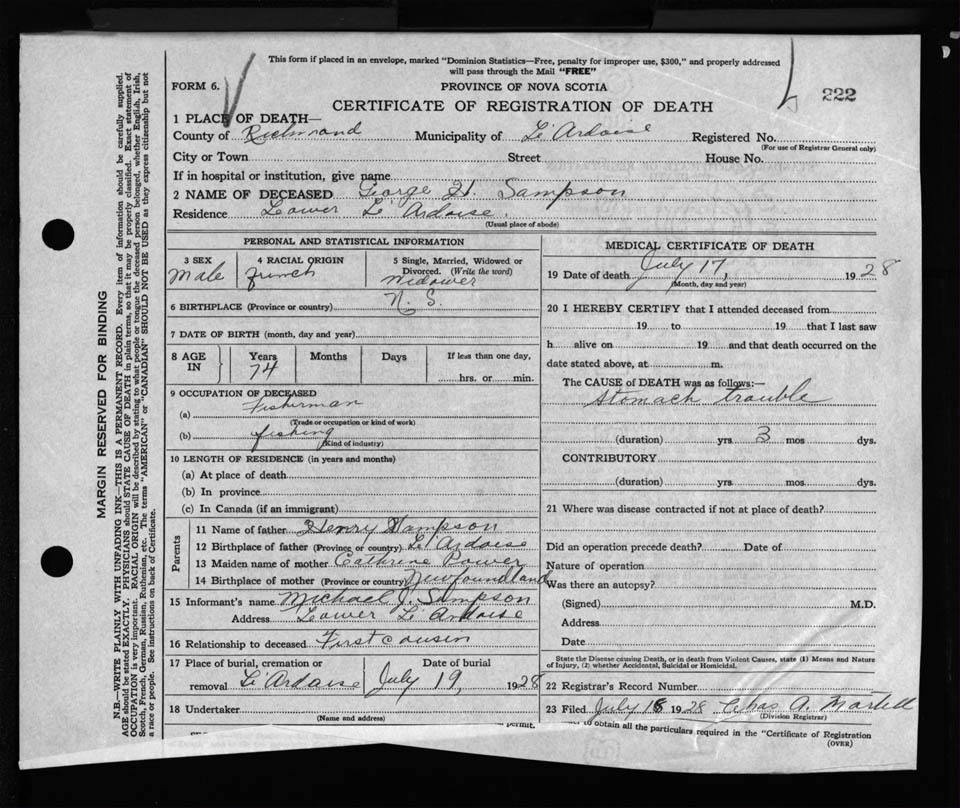 This form if placed in an envelope, marked "Dominion Statistics—Free, penalty for improper use, $300," and properly addressed
will pass through the Mail "FREE"
FORM 6.
PROVINCE OF NOVA SCOTIA
222
CERTIFICATE OF REGISTRATION OF DEATH
1 PLACE OF DEATH—
County of Richmond Municipality of L'Ardoise Registered No.
(For use of Registrar General only)
City or Town Street House No.
If in hospital or institution, give name
2 NAME OF DECEASED George H. Sampson
Residence Lower L'Ardoise.
(Usual place of abode)
MARGIN RESERVED FOR BINDING
N.B.—WRITE PLAINLY WITH UNFADING INK—THIS IS A PERMANENT RECORD. Every item of information should be carefully supplied.
AGE should be stated EXACTLY. PHYSICIANS should STATE CAUSE OF DEATH in plain terms, so that it may be properly classified. Exact statement of
OCCUPATION is very important. RACIAL ORIGIN will be described by stating to what people or tongue the deceased person belonged, whether English, Irish,
Scotch, French, German, Russian, Ruthenian, etc. The terms "AMERICAN" or "CANADIAN" SHOULD NOT BE USED as they express citizenship but not
a race or people. See instructions on back of Certificate.
PERSONAL AND STATISTICAL INFORMATION
3 SEX
Male
4 RACIAL ORIGIN
French
5 Single, Married, Widowed or
Divorced. (Write the word)
Widower
6 BIRTHPLACE (Province or country) N. S.
7 DATE OF BIRTH (month, day and year)
8 AGE IN
Years Months Days If less than one day,
74 hrs. or min.
9 OCCUPATION OF DECEASED
(a) Fisherman
(Trade or occupation or kind of work)
(b) fishing
(Kind of industry)
10 LENGTH OF RESIDENCE (in years and months)
(a) At place of death
(b) In province
(c) In Canada (if an immigrant)
Parents
11 Name of father Henry Sampson
12 Birthplace of father (Province or country) L'Ardoise
13 Maiden name of mother Cathrine Power
14 Birthplace of mother (Province or country) Newfoundland
15 Informant's name Michael J. Sampson
Address Lower L'Ardoise
16 Relationship to deceased First cousin
17 Place of burial, cremation or Date of burial
removal L'Ardoise July 19, 1928
18 Undertaker
(Name and address)
permit.
MEDICAL CERTIFICATE OF DEATH
19 Date of death July 17, 1928
(Month, day and year)
20 I HEREBY CERTIFY that I attended deceased from
19 to 19 that I last saw
h alive on 19 and that death occurred on the
date stated above, at m.
The CAUSE of DEATH was as follows:—
stomach trouble
(duration) yrs 3 mos dys.
CONTRIBUTORY
(duration) yrs mos dys.
21 Where was disease contracted if not at place of death?
Did an operation precede death? Date of
Nature of operation
Was there an autopsy?
(Signed) M.D.
Address
Date
State the Disease causing Death, or in death from Violent Causes, state (1) Means and Nature
of Injury, (2) whether Accidental, Suicidal or Homicidal.
22 Registrar's Record Number
23 Filed July 18 1928 Chas A. Martell
(Division Registrar)
to obtain all the particulars required in the "Certificate of Registration
(OVER)